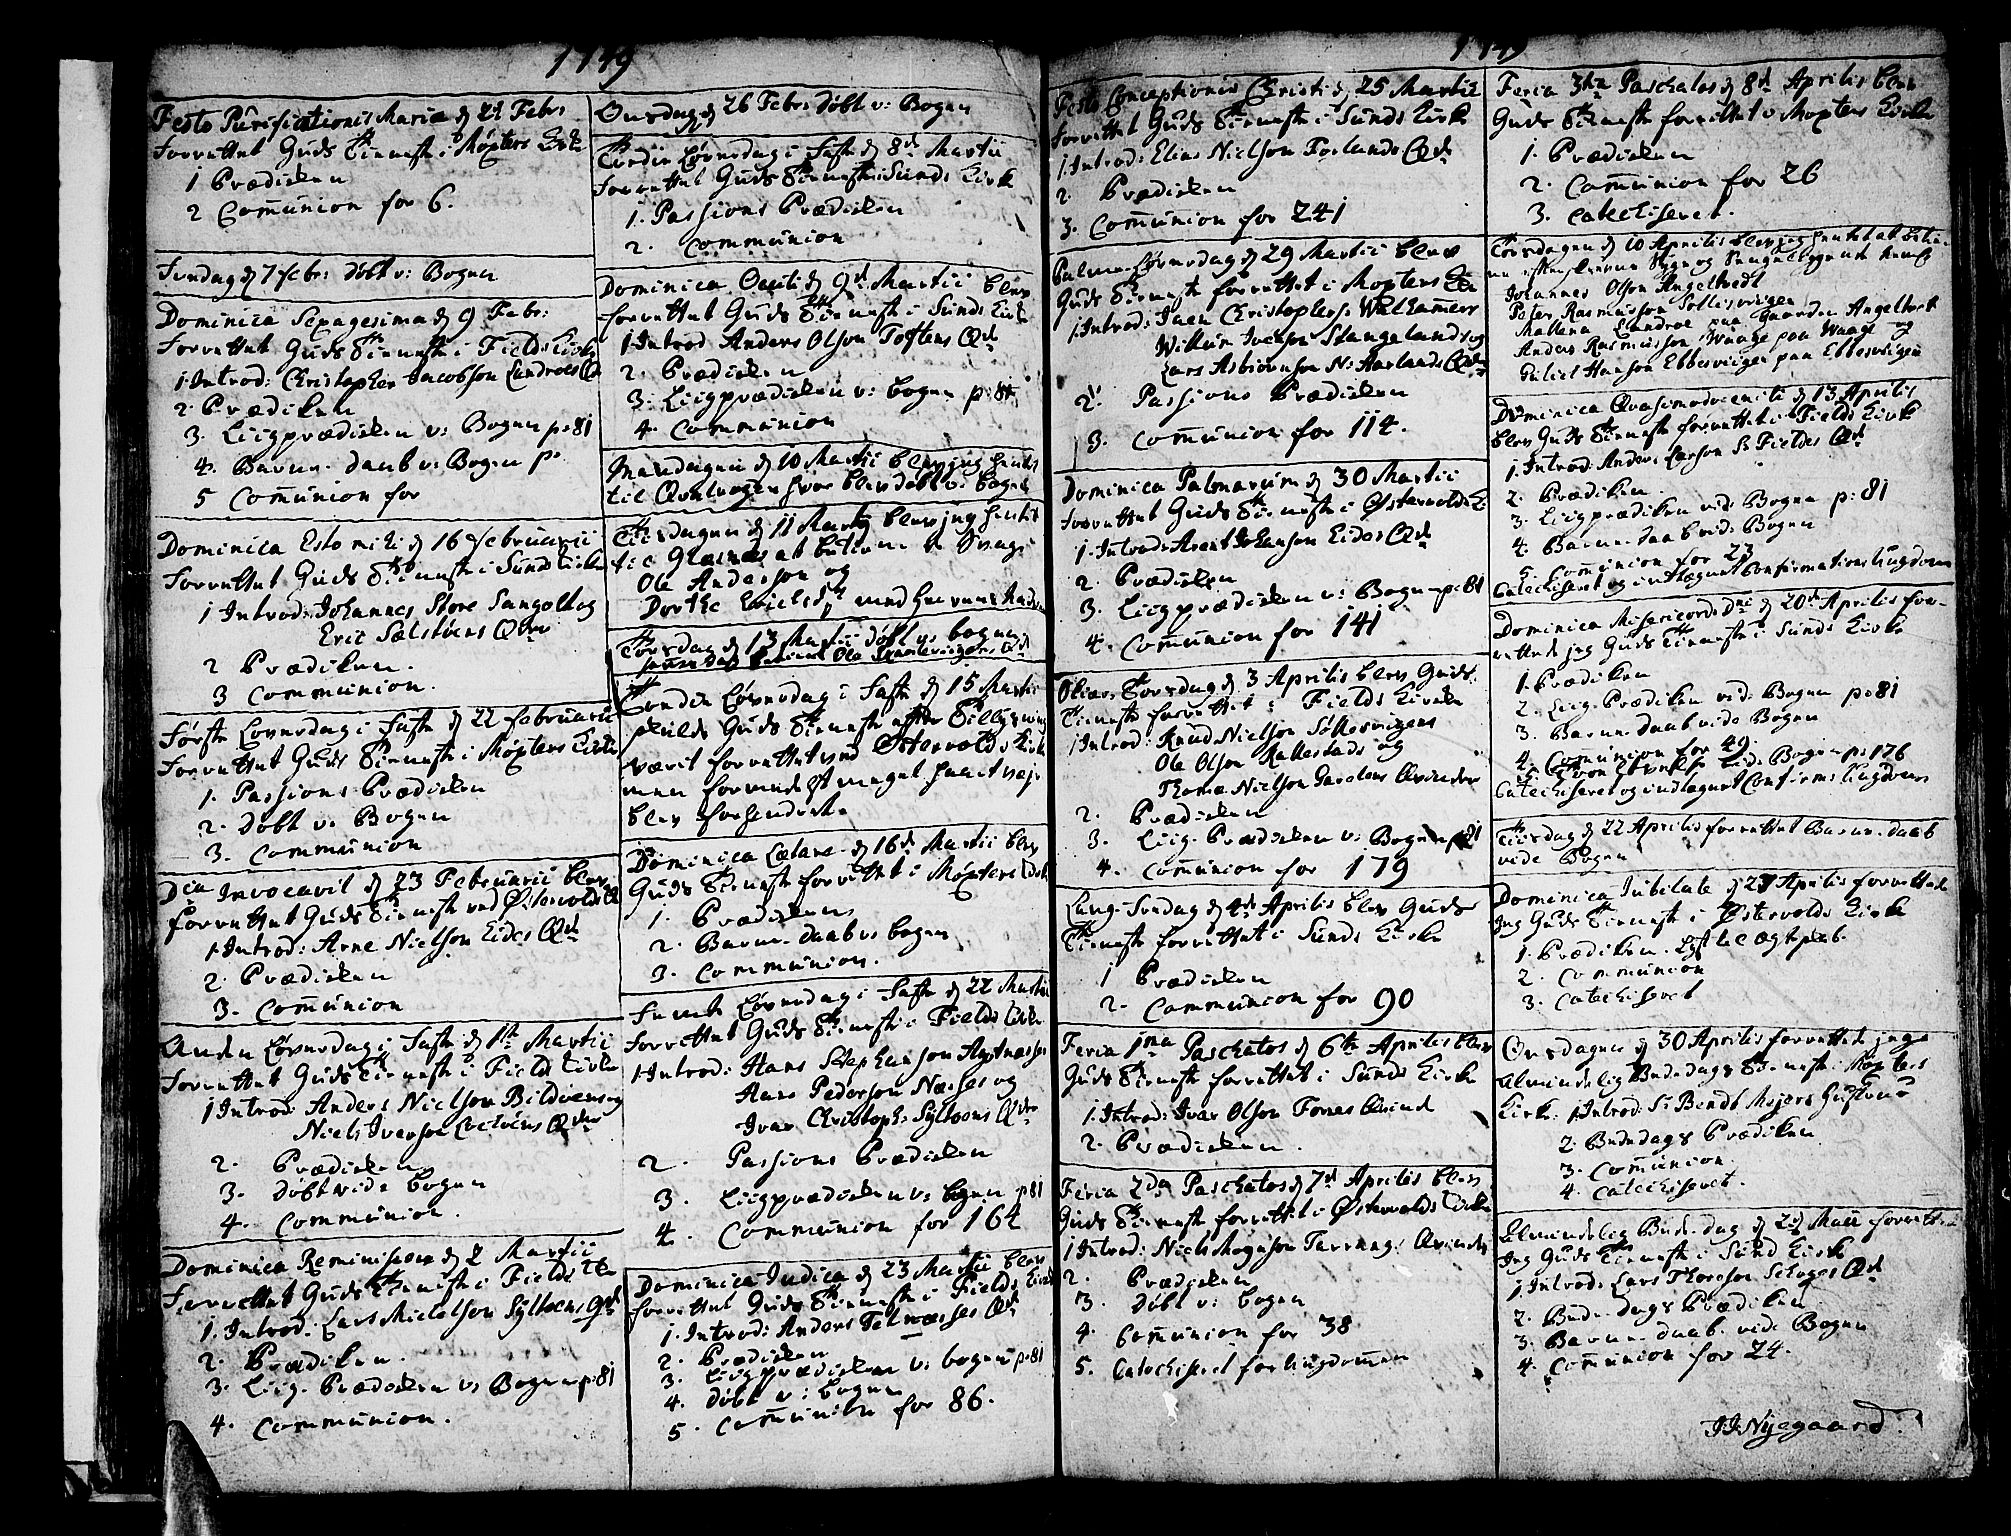 1749
Festo Purificationis Mariæ d 2d Febr
forrettet Guds Tieneste i Møgsters Kirke
1 Prædiken
2 Communion for 6.
Fredag d 7 Febr: døbt v: Bogen
Dominica Sepagesima d 9 Febr:
forrettet Guds Tieneste i Fields Kirke
1 Introd: Christopher Jacobson Landroes Qd
2. Prædiken
3. Liigprædiken v: Bogen p: 81
4. Barne-daab v: Bogen p:
5 Communion for
Dominica Esto mihi d 16 Februarii
forrettet Guds Tieneste i Sund Kirke
1 Introd: Johannes Store Sangolt og
Eric Sælstøens Qvr
2 Prædiken.
3 Communion.
Første Løverdag i Faste d 22 Februarii
forrettet Guds Tieneste i Møgsters Kirke
1. Passions Prædiken
2. Døbt v: Bogen
3. Communion
Dca Invocavit d 23 Februarii blev
forrettet Guds Tieneste ved Østervolds K
1 Introd: Arne Nielson Eides Qd
2. Prædiken
3. Communion
Anden Løverdag i Faste d 1st Martii
forrettet Guds Tieneste i Fields Kirke
1 Introd: Anders Nielson Bildøens og
Niels Iverson Qvr
2. Prædiken
3. døbt vide bogen
4. Communion.
Dominica Reminiscere d 2 Martii
Forrettet Guds Tieneste i Fields K
1. Introd: Lars Michelson Syltøens Qd
2. Prædiken.
3. Liig-Prædiken v: Bogen p: 81
4. Communion.
Onsdag d 26 Febr: døbt v: Bogen
Tredie Løverdag i Faste d 8d Martii
forrettet Guds Tieneste i Sunds Kirke
1. Passions Prædiken
2. Communion
Dominica Oculi d 9d Martii blev
forrettet Guds Tieneste i Sunds Kirke
1 Introd Anders Olson Toftens Qd
2. Prædiken
3. Liigprædiken v: bogen p: 81
4. Communion
Mandagen d 10 Martii blev jeg hentet
til hvor blev døbt v: bogen
Tiirsdagen d 11 Marty blev jeg hentet
til Glesnes at betiene de Svage
Ole Anderson og
Dorthe
Torsdag d 13 Martii døbt v: bogen
Fierde Løverdag i Faste d 15 Martii
skulde Guds Tieneste efter
været forrettet ved Østervolds Kirke
men formedelst meget haart vejr
blev forhindret.
Dominica Lætare d 16d Martii blev
Guds Tieneste forrettet i Møgsters Kirke
1. Prædiken
2. Barne-daab v: bogen
3. Communion.
Femte Løverdag i Faste d 22 Martii
forrettet Guds Tieneste i Fields Kirke
1 Introd: Hans Stephanson
Hans Pederson Næsses og
Ivar Christoph: Syltøens Qvr
2. Passions Prædiken
3. Liigprædiken v: bogen p: 81
4. Communion for 164
Dominica Judica d 23 Martii blev
forrettet Guds Tieneste i Fields Kirke
1. Introd: Anders Telnæsses Qd
2. Prædiken
3. Liigprædiken v: bogen p: 81
4. døbt v: bogen
5. Communion for 86.
1749
Festo Conceptionis Christi d 25 Martii
forrettet Guds Tieneste i Sunds Kirke
1. Introd: Elias Nielson Forlands Qd
2. Prædiken
3. Communion for 241
Palme-Løverdag d 29 Martii blev
Guds Tieneste forrettet i Møgsters K
1 Introd: Jaen Christophers: Walhammer
Willum Iverson Stangelands og
Lars Asbiørnson N: Harlands Qvr
2. Passions Prædiken
3. Communion for 114.
Dominica Palmarum d 30 Martii
forrettet Guds Tieneste i Østervolds K
1. Introd: Arent Johanson Eides Qd
2. Prædiken
3. Liigprædiken v: Bogen p: 81
4. Communion for 141
Skiær-Torsdag d 3 Aprilis blev Guds
Tieneste forrettet i Fields Kirke
1 Introd: Knud Nielson Sollesvigens
Ole Olson Rakkestads og
Thomæ Nielson Qvinder
2. Prædiken
3. Liig-Prædiken v: Bogen p: 81
4. Communion for 179
Lang-Fredag d 4d Aprilis blev Guds
Tieneste forrettet i Sunds Kirke
1 Prædiken
2. Communion for 90
Feria 1ma Paschatos d 6te Aprilis blev
Guds Tieneste forrettet i Sunds Kirke
1. Introd: Ivar Olson Tornes Qvind
2. Prædiken.
Feria 2da Paschatos d 7d Aprilis blev
Guds Tieneste forrettet i Østervolds Kirke
1 Introd: Niels Mognson Qvinde
2. Prædiken
3. Døbt v: bogen
4. Communion for 38
5. Catechiseret for Ungdommen
Feria 3tia Paschatos d 8d Aprilis blev
Guds Tieneste forrettet v: Møgsters Kirke
1. Prædiken
2. Communion for 26
3. Catechiseret.
Torsdagen d 10 Aprilis blev jeg hentet at betie-
ne Syge og Sengeliggende
Johannes Olson Angeltvedt
Peter Rasmusson Sollesvigen
Mallena Landroe paa Gaarden Angeltvedt
Anders Rasmusson Waage paa Waage og
Hanson Ebbesvigen paa Ebbesvigen
Dominica Qvasimodogeniti d 13 Aprilis
blev Guds Tieneste forrettet i Fields Kirke
1. Introd: Anders Larson S: Fieldes Qd
2. Prædiken.
3. Liigprædiken vid: Bogen p: 81
4. Barne-daab vid: Bogen
5. Communion for 23
Catechiseret og indtegnet Confirmations Ungdom
Dominica Misericordi: Dni d 20d Aprilis for-
rettede jeg Guds Tieneste i Sunds Kirke
1. Prædiken
2. Liig-Prædiken vid: Bogen p: 81
3. Barne-daab vide Bogen
4. Communion for 49.
vide Bogen p: 176
Catechiseret og indtegnet Confirm: Ungdom
Tiirsdag d 22 Aprilis forrettet Barne-daab
vide Bogen
Dominica Jubilate d 27 Aprilis forrettede
Jeg Guds Tieneste i Østervolds Kirke
1. Prædiken. Lyst til Ægtskab.
2. Communion
3. Catechiseret
Onsdagen d 30 Aprilis forrettede jeg
almindelig Bededags Tieneste i Møgsters
Kirke: 1 Introd: Sr Bendt Mejers Hustrue
2. Bededags Prædiken
3. Communion.
4. Catechiseret.
Almindelig Bede-dag d 2d Maii forrettede
Jeg Guds Tieneste i Sund Kirke
1 Introd: Lars Thoreson Qd
2. Bede-dags Prædiken
3. Barne-daab vide Bogen
4. Communion for 24.
JJNyegaard.